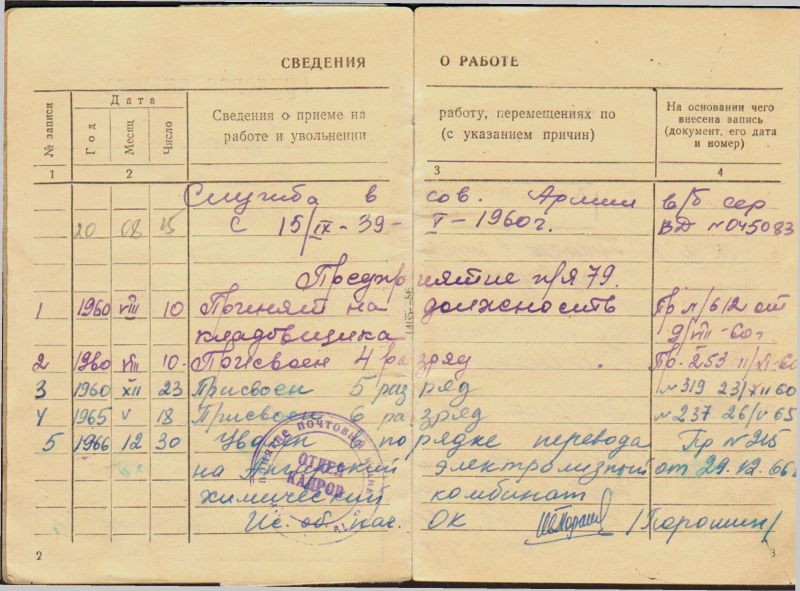 СВЕДЕНИЯ О РАБОТЕ
№ записи
Дата
Год
Месяц
Число
Сведения о приеме на работу, перемещениях по
работе и увольнении (с указанием причин)
На основании чего
внесена запись
(документ, его дата
и номер)
1 2 3 4
Служба в сов. Армии в/б сер
20 08 15 С 15/IX-39- V-1960г. ВД №045083
Предприятие п/я 79.
1 1960 VIII 10 Принят на должность Пр л/с 612 от
кладовщика 9/VIII-60г.
2 1960 10. Присвоен 4 разряд Пр. 253 11/XI-60
3 1960 XII 23 Присвоен 5 разряд №319 23/XII 60
4 1965 V 18 Присвоен 6 разряд №237 26/V 65
5 1966 12 30 Уволен в порядке перевода Пр №215
на Ангарский электролизный от 29.12.66г
химический комбинат
Ис. об. нач. ОК /Парошин/
ОТДЕЛ
КАДРОВ
2
3